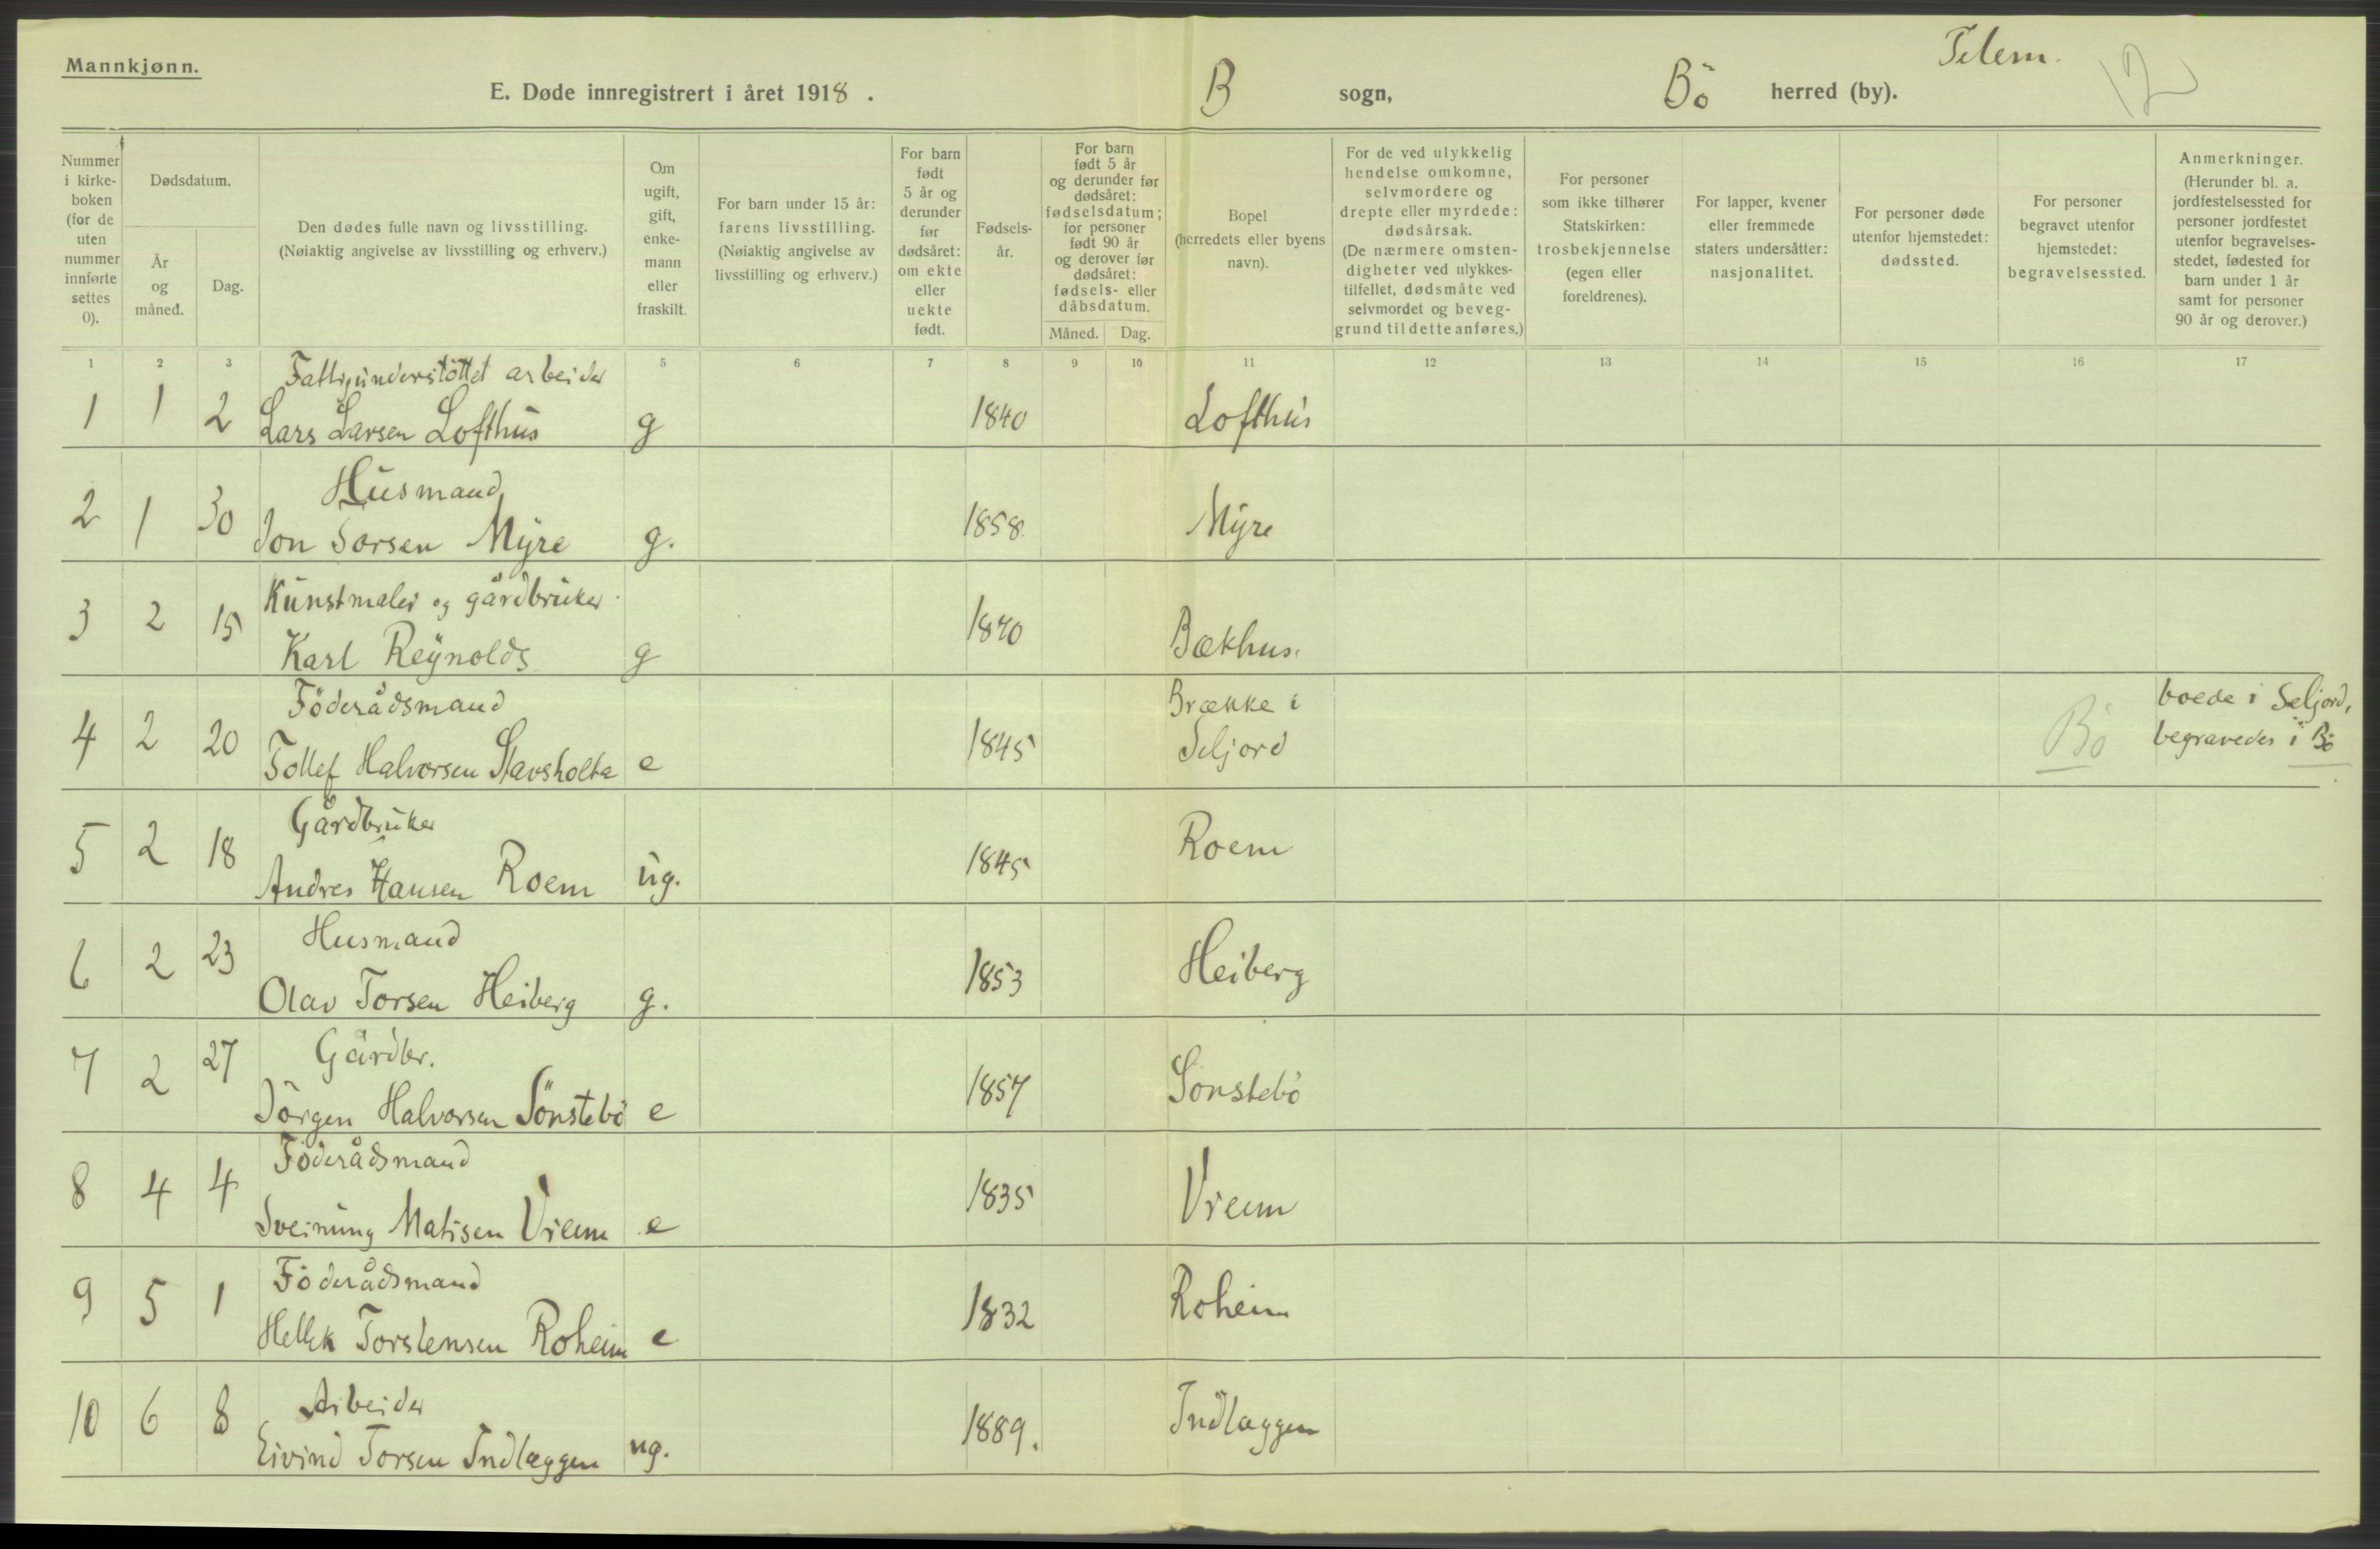 Mannkjønn.
E. Døde innregistrert i året 1918.
B sogn,
Bö herred (by).
Telem.
12
Nummer i kirke-boken (for de uten nummer innførte settes 0).
Dødsdatum.
År og måned.
Dag.
Den dødes fulle navn og livsstilling. (Nøiaktig angivelse av livsstilling og erhverv.)
Om ugift, gift, enke-mann eller fraskilt.
For barn under 15 år: farens livsstilling. (Nøiaktig angivelse av livsstilling og erhverv.)
For barn født 5 år og derunder før dødsåret: om ekte eller uekte født.
Fødsels-år.
For barn født 5 år og derunder før dødsåret: fødselsdatum; for personer født 90 år og derover før dødsåret: fødsels- eller dåbsdatum.
Måned.
Dag.
Bopel (herredets eller byens navn).
For de ved ulykkelig hendelse omkomne, selvmordere og drepte eller myrdede: dødsårsak. (De nærmere omsten-digheter ved ulykkes-tilfellet, dødsmåte ved selvmordet og beveg-grund til dette anføres.)
For personer som ikke tilhører Statskirken: trosbekjennelse (egen eller foreldrenes).
For lapper, kvener eller fremmede staters undersåtter: nasjonalitet.
For personer døde utenfor hjemstedet: dødssted.
For personer begravet utenfor hjemstedet: begravelsessted.
Anmerkninger. (Herunder bl. a. jordfestelsessted for personer jordfestet utenfor begravelses-stedet, fødested for barn under 1 år samt for personer 90 år og derover.)
1 2 3 5 6 7 8 9 10 11 12 13 14 15 16 17
Fattigunderstöttet arbeider
1 1 2 Lars Larsen Lofthus g 1840 Lofthus
Husmand
2 1 30 Jon Sorsen Myre g. 1858 Myre
Kunstmaler og gårdbruker
3 2 15 Karl Reynolds g 1840 Bækhus.
Föderådsmand Brække i boede i Seljord,
4 2 20 Tollef Halvorsen Stavsholta e 1845 Seljord Bö begravedes i Bö
Gårdbruker
5 2 18 Andres Hansen Roem ug. 1845 Roem
Husmand
6 2 23 Olav Torsen Heiberg g. 1853 Heiberg
Gårdbr.
7 2 27 Jörgen Halvorsen Sönstebö e 1857 Sönstebö
Föderådsmand
8 4 4 Sveinung Matisen Vreim e 1835 Vreim
Föderådsmand
9 5 1 Hellek Torstensen Roheim e 1832 Roheim
Arbeider
10 6 8 Eivind Torsen Indlæggen ug. 1889. Indlæggen